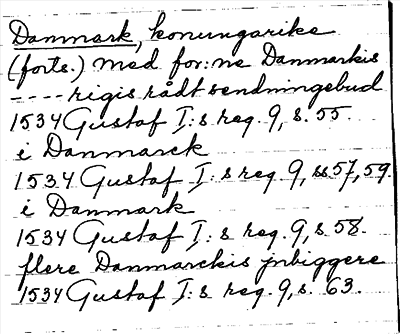 Danmark, konungarike
(forts.) med for:ne Danmarkis
---- rigis rådt sendningebud
1534 Gustaf I:s reg. 9, s. 55.
i Danmarck
1534 Gustaf I:s reg. 9, ss 57, 59.
i Danmark
1534 Gustaf I:s reg. 9, s. 58.
flere Danmarckis jnbiggere
1534 Gustaf I:s reg. 9, s. 63.